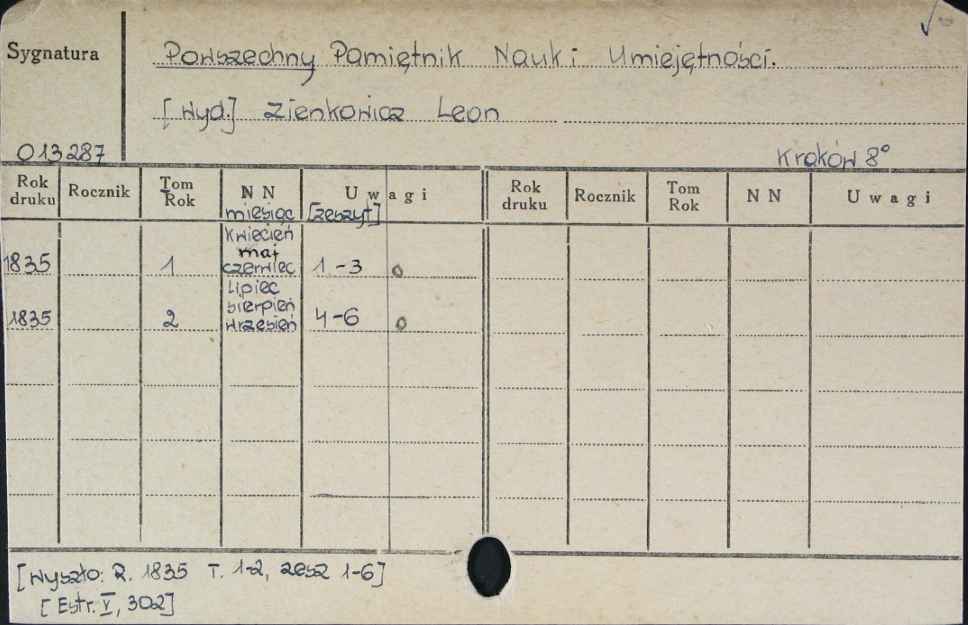 Sygnatura
Powszechny Pamiętnik Nauk i Umiejętności.
[Wyd.] Zienkowicz Leon
013287
Kraków 8°
Rok druku Rocznik Tom Rok NN miesiąc Uwagi [zeszyt] Rok druku Rocznik Tom Rok NN Uwagi
1835 1 Kwiecień maj czerwiec 1-3 o
1835 2 Lipiec sierpień wrzesień 4-6 o
[Wyszło: R. 1835 T. 1-2, zesz 1-6]
[Estr. V, 302]